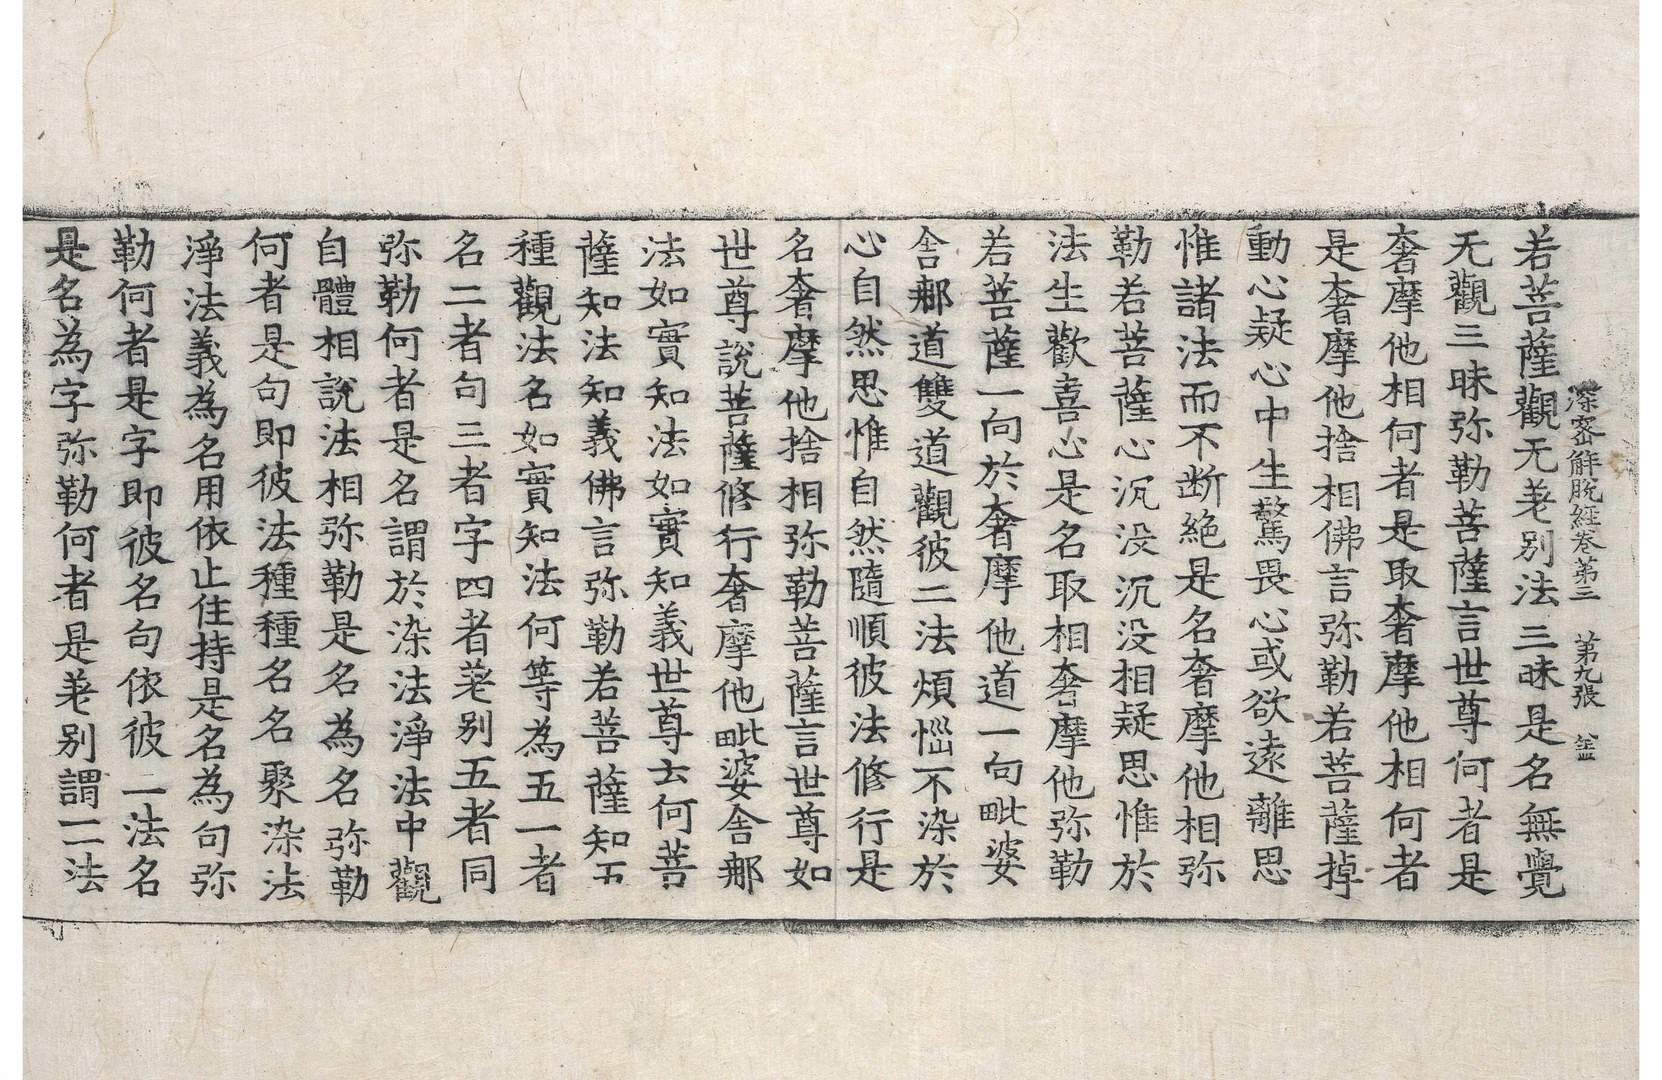 深密解脫經卷第三　第九張
若菩薩觀无差別法三昧是名無覺
无觀三昧弥勒菩薩言世尊何者是
奢摩他相何者是取奢摩他相何者
是奢摩他捨相佛言弥勒若菩薩掉
動心疑心中生驚畏心或欲遠離思
惟諸法而不断絕是名奢摩他相弥
勒若菩薩心沉没沉没相疑思惟於
法生歡喜心是名取相奢摩他弥勒
若菩薩一向於奢摩他道一句毗婆
舍那道雙道觀彼二法煩惱不染於
心自然思惟自然隨順彼法修行是
名奢摩他捨相弥勒菩薩言世尊如
世尊說菩薩修行奢摩他毗婆舍那
法如實知法如實知義世尊云何菩
薩知法知義佛言弥勒若菩薩知五
種觀法名如實知法何等為五一者
名二者句三者字四者差別五者同
弥勒何者是名謂於染法淨法中觀
自體相說法相弥勒是名為名弥勒
何者是句即彼法種種名名聚染法
淨法義為名用依止住持是名為句弥
勒何者是字即彼名句依彼二法名
是名為字弥勒何者是差別謂一二法